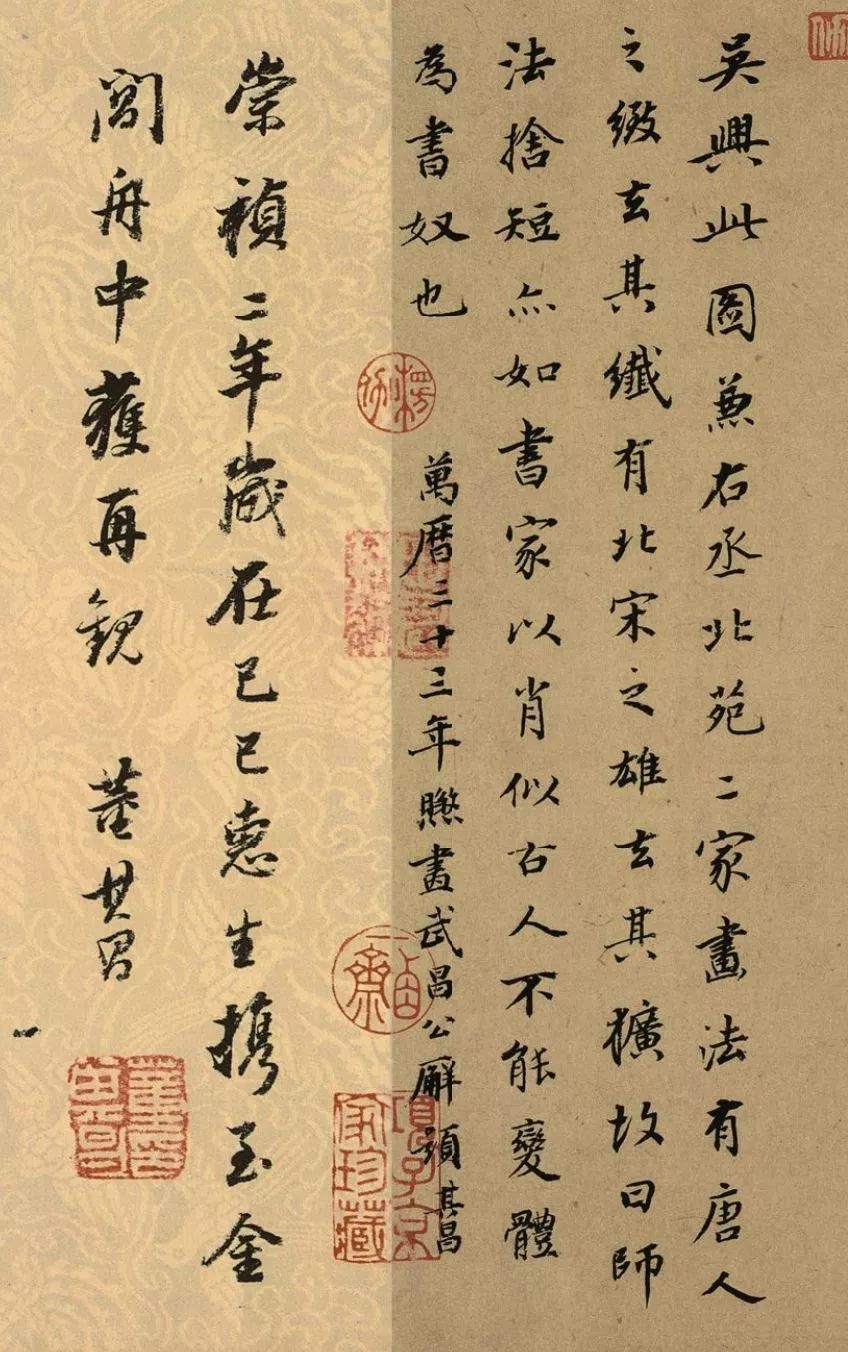 吳興此圖兼右丞北苑二家畫法有唐人
之緻去其纖有北宋之雄去其獷故曰師
法捨短亦如書家以肖似古人不能變體
為書奴也
萬曆三十三年畫武昌公廨題其昌
崇禎二年歲在己巳惠生攜至金
閶舟中獲再觀 董其昌
項子京
家珍藏